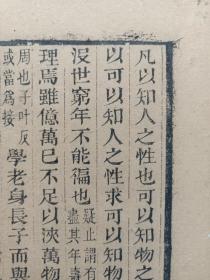 凡以知人之性也可以知物之
以可以知人之性求可以知物
沒世窮年不能徧也疑止謂有
盡其年壽
理焉雖億萬已不足以浹萬物
周也子叶反
或當爲接
學老身長子而與